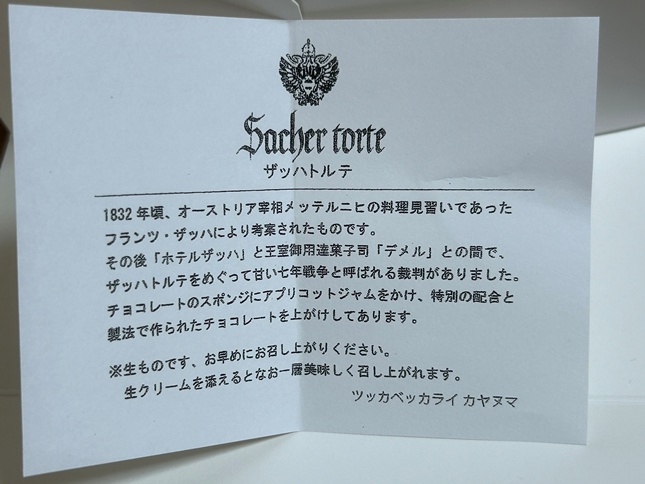 Sacher torte
ザッハトルテ
1832年頃、オーストリア宰相メッテルニヒの料理見習いであった
フランツ・ザッハにより考案されたものです。
その後「ホテルザッハ」と王室御用達菓子司「デメル」との間で、
ザッハトルテをめぐって甘い七年戦争と呼ばれる裁判がありました。
チョコレートのスポンジにアプリコットジャムをかけ、特別の配合と
製法で作られたチョコレートを上がけしてあります。
※生ものです、お早めにお召し上がりください。
生クリームを添えるとなお一層美味しく召し上がれます。
ツッカベッカライ カヤヌマ